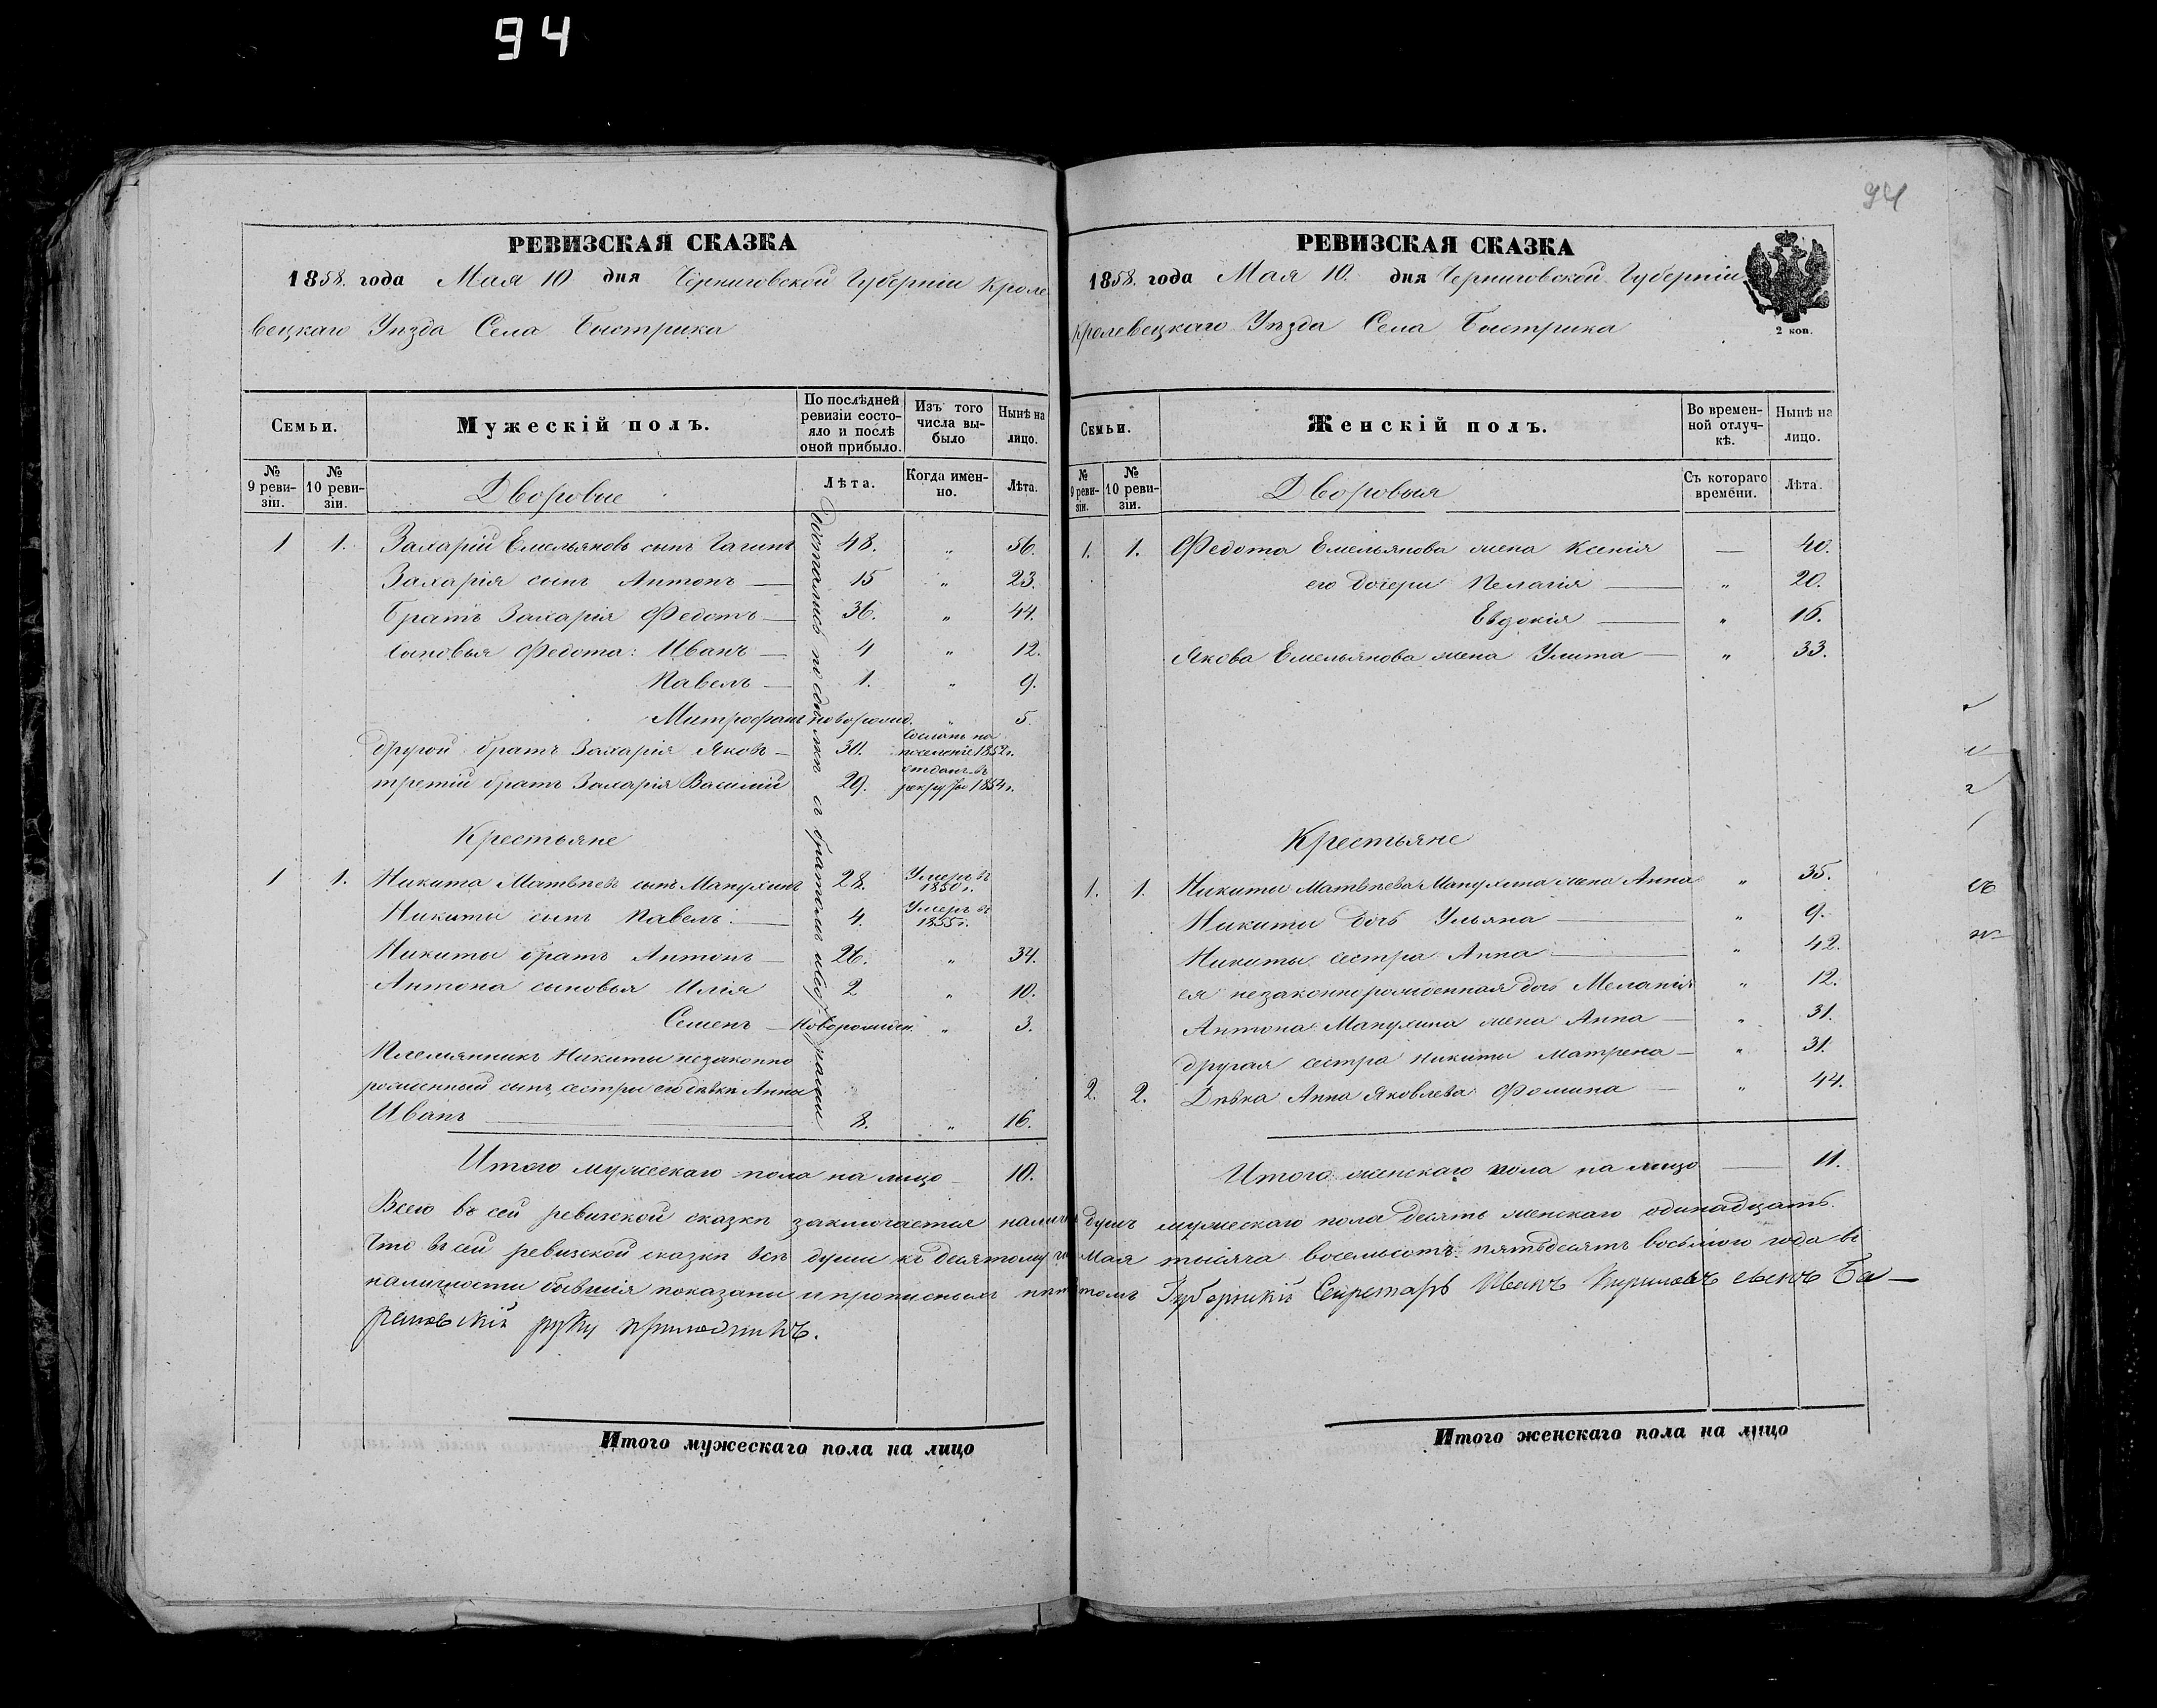 94
94
РЕВИЗСКАЯ СКАЗКА
1858. года Мая 10 дня Черниговской Губерніи Кроле
вецкаго Уѣзда Села Быстрика
Семьи.
Мужескій полъ.
По послѣдней ревизіи состояло и послѣ оной прибыло.
Изъ того числа выбыло
Нынѣ на лицо.
№ 9 ревизіи.
№ 10 ревизіи.
Дворовые
Лѣта.
Когда именно.
Лѣта.
1 1. Захарій Емельяновъ сынъ 48. „ 56.
Захарія сынъ Антонъ — 15 „ 23.
Братъ Захарія Федотъ — 36. „ 44.
Сыновья Федота: Иванъ — 4 „ 12.
Павелъ — 1. „ 9.
Митрофанъ новорожд. „ 5.
другой братъ Захарія Яковъ — 30. Сосланъ на поселеніе 1852г.
третій братъ Захарія Василій 29. отданъ въ рекруты 1854г.
Достались по сдѣлкѣ съ братомъ
Крестьяне
1 1. Никита Матвѣевъ сынъ Манухинъ 28. Умеръ въ 1850 г.
Никиты сынъ Павелъ — 4. Умеръ въ 1855 г.
Никиты братъ Антонъ — 26. „ 34.
Антона сыновья Илія 2 „ 10.
Семенъ — Новорожден. „ 3.
Племянникъ Никиты незаконно
рожденный сынъ, сестры его дѣвки Анны
Иванъ — 8. „ 16.
Итого мужескаго пола на лицо — 10.
РЕВИЗСКАЯ СКАЗКА
1858. года Мая 10. дня Черниговской Губерніи
Кролевецкаго Уѣзда Села Быстрика
2 коп.
Семьи.
Женскій полъ.
Во временной отлучкѣ.
Нынѣ на лицо.
№ 9 ревизіи.
№ 10 ревизіи.
Дворовыя
Съ котораго времени.
Лѣта.
1. 1. Федота Емельянова жена Ксенія — 40.
его дочери Пелагія — „ 20.
Евдокія — „ 16.
Якова Емельянова жена Улита — „ 33.
Крестьяне
1. 1. Никиты Матвѣева Манухина жена Анна „ 35.
Никиты дочь Ульяна — „ 9.
Никиты сестра Анна — „ 42.
ея незаконнорожденная дочь Меланія „ 12.
Антона Манухина жена Анна — „ 31.
другая сестра Никиты Матрена — „ 31.
2. 2. Дѣвка Анна Яковлева Фомина — „ 44.
Итого женскаго пола на лицо — 11.
Всего въ сей ревизской сказкѣ заключается душъ мужескаго пола десять женскаго одинадцать.
Что въ сей ревизской сказкѣ всѣ души къ десятому Мая тысяча восемьсотъ пятьдесятъ восьмого года въ
наличности бывшія показаны и прописныхъ Губернскій Секретарь Иванъ Кириловъ сынъ Ба—
рановскій руку приложилъ.
Итого мужескаго пола на лицо
Итого женскаго пола на лицо